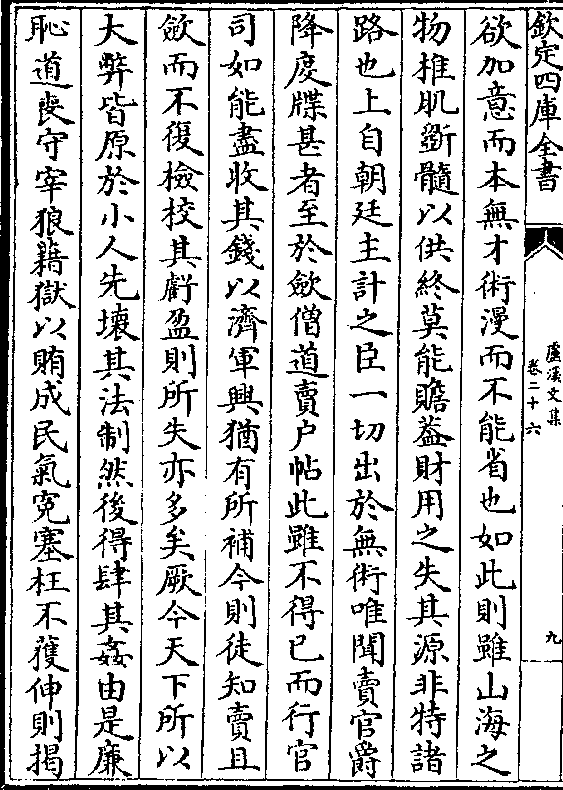 欽定四庫全書
盧溪文集
卷二十六
九
欲加意而本無才術漫而不能省也如此則雖山海之
物椎肌斵髓以供終莫能贍葢財用之失其源非特諸
路也上自朝廷主計之臣一切出於無術唯聞賣官爵
降度牒甚者至於斂僧道賣户帖此雖不得已而行官
司如能盡收其錢以濟軍興猶有所補今則徒知賣且
斂而不復檢校其虧盈則所失亦多矣厥今天下所以
大弊皆原於小人先壞其法制然後得肆其姦由是廉
恥道喪守宰狼藉獄以賄成民氣寃塞枉不獲伸則揭